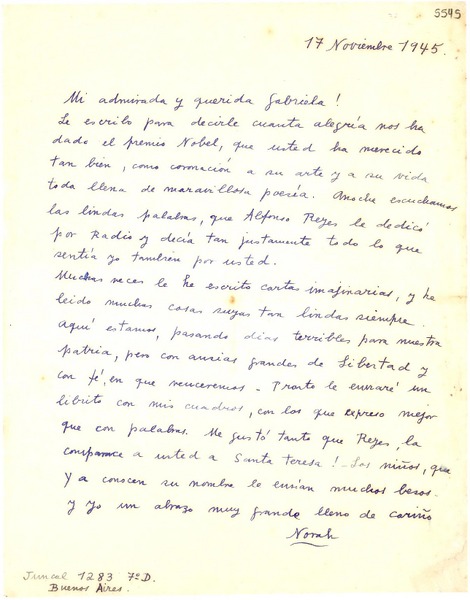 5545
17 Noviembre 1945.
Mi admirada y querida Gabriela!
Le escribo para decirle cuanta alegría nos ha
dado el premio Nobel, que usted ha merecido
tan bien, como coronación a su arte y a su vida
toda llena de maravillosa poesía. Anoche escuchamos
las lindas palabras, que Alfonso Reyes la dedicó
por Radio y decía tan justamente todo lo que
sentía yo también por usted.
Muchas veces le he escrito cartas imajinarias, y he
leido muchas cosas suyas tan lindas siempre.
Aquí estamos, pasando días terribles para nuestra
patria, pero con ansias grandes de Libertad y
con fé, en que venceremos - Pronto le enviaré un
librito con mis cuadros, con los que expreso mejor
que con palabras. Me gustó tanto que Reyes, la
comparace a usted a Santa Teresa! - Los niños, que
ya conocen su nombre le envian muchos besos.
y yo un abrazo muy grande lleno de cariño
Norah
Juncal 1283 7º D.
Buenos Aires.